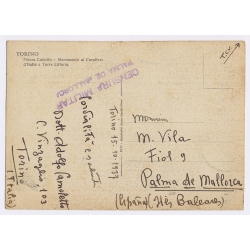 TORINO
Piazza Castello - Monumento al Cavaliere
d'Italia e Torre Littoria
CENSURA MILITAR
PALMA DE MALLORCA
Torino 15.10.1937
Cordialità e saluti
Dott. Adolfo
C. Vinzaglio 103
Torino
(Italia)
M. Vila
Fiol 9
Palma de Mallorca
(España) (Iles Baleares)